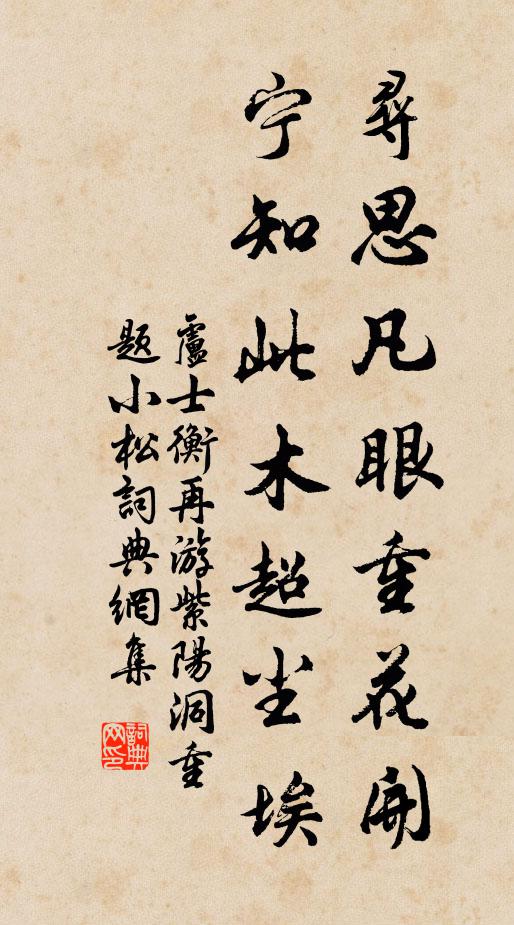 尋思凡眼重花開
宁知此木超尘埃
盧士衡再游紫陽洞重
题小松詞典網集
詞典网印